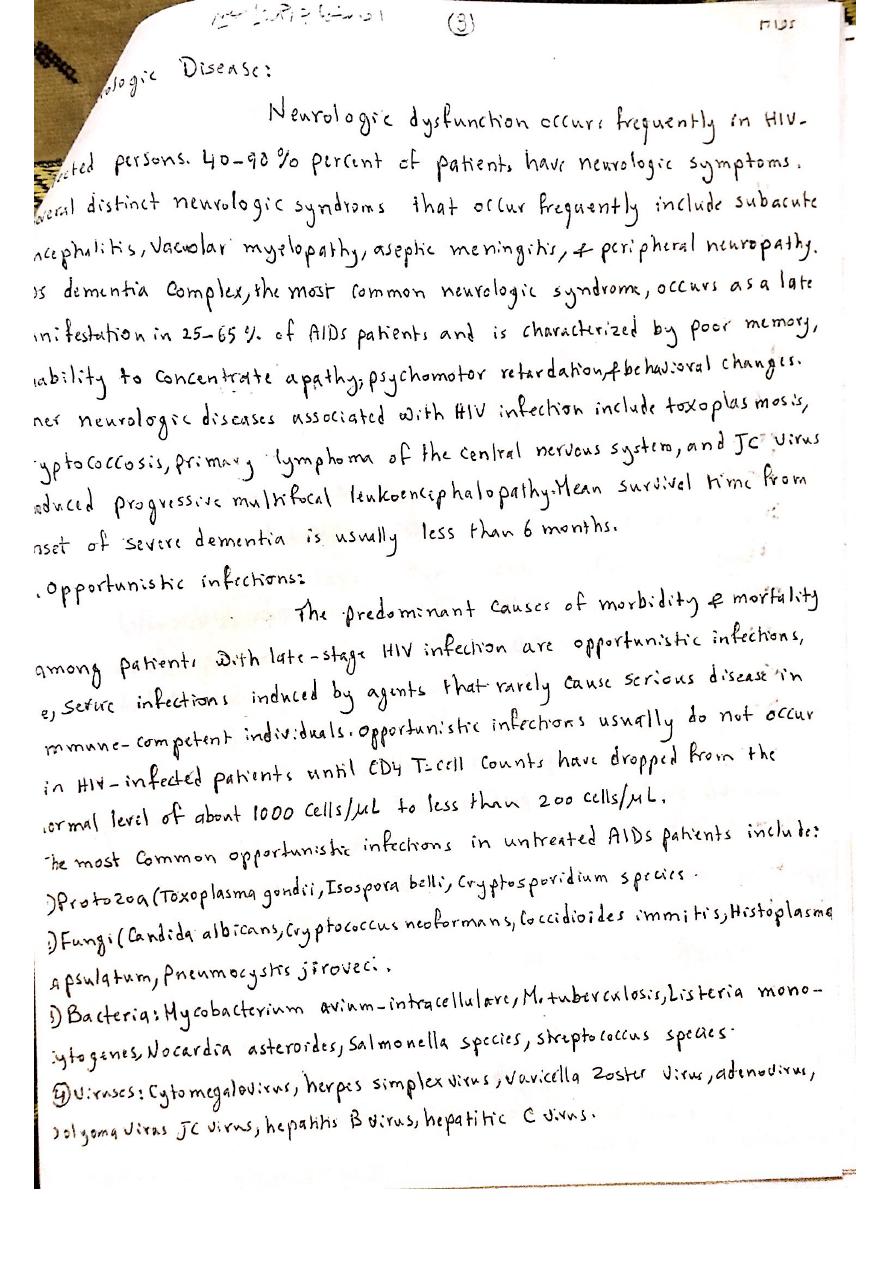 (3)
ologic Disease:
Neurologic dysfunction occurs frequently in HIV-
cted persons. 40-90% percent of patients have neurologic symptoms.
veral distinct neurologic syndroms that occur frequently include subacute
ncephalitis, Vacuolar myelopathy, aseptic meningitis, & peripheral neuropathy.
Ds dementia Complex, the most common neurologic syndrome, occurs as a late
nifestation in 25-65% of AIDs patients and is characterized by poor memory,
ability to concentrate apathy, psychomotor retardation, & behavioral changes.
her neurologic diseases associated with HIV infection include toxoplasmosis,
yptococcosis, primary lymphoma of the central nervous system, and JC virus
nduced progressive multifocal leukoencephalopathy. Mean survivel time from
nset of severe dementia is usually less than 6 months.
. Opportunistic infections:
The predominant causes of morbidity & mortality
among patients with late-stage HIV infection are opportunistic infections,
e, severe infections induced by agents that rarely cause serious disease in
mmune-competent individuals. opportunistic infections usually do not occur
in HIV-infected patients until CD4 T-cell counts have dropped from the
ormal level of about 1000 cells/μL to less than 200 cells/μL.
he most common opportunistic infections in untreated AIDs patients include:
)Protozoa (Toxoplasma gondii, Isospora belli, Cryptosporidium species.
)Fungi (Candida albicans, Cryptococcus neoformans, Coccidioides immitis, Histoplasma
apsulatum, Pneumocystis jiroveci.
3) Bacteria: Mycobacterium avium-intracellulare, M. tuberculosis, Listeria mono-
cytogenes, Nocardia asteroides, Salmonella species, streptococcus species.
4) Viruses: Cytomegalovirus, herpes simplex virus, varicella Zoster virus, adenovirus,
polyoma virus JC virus, hepatitis B virus, hepatitic C virus.